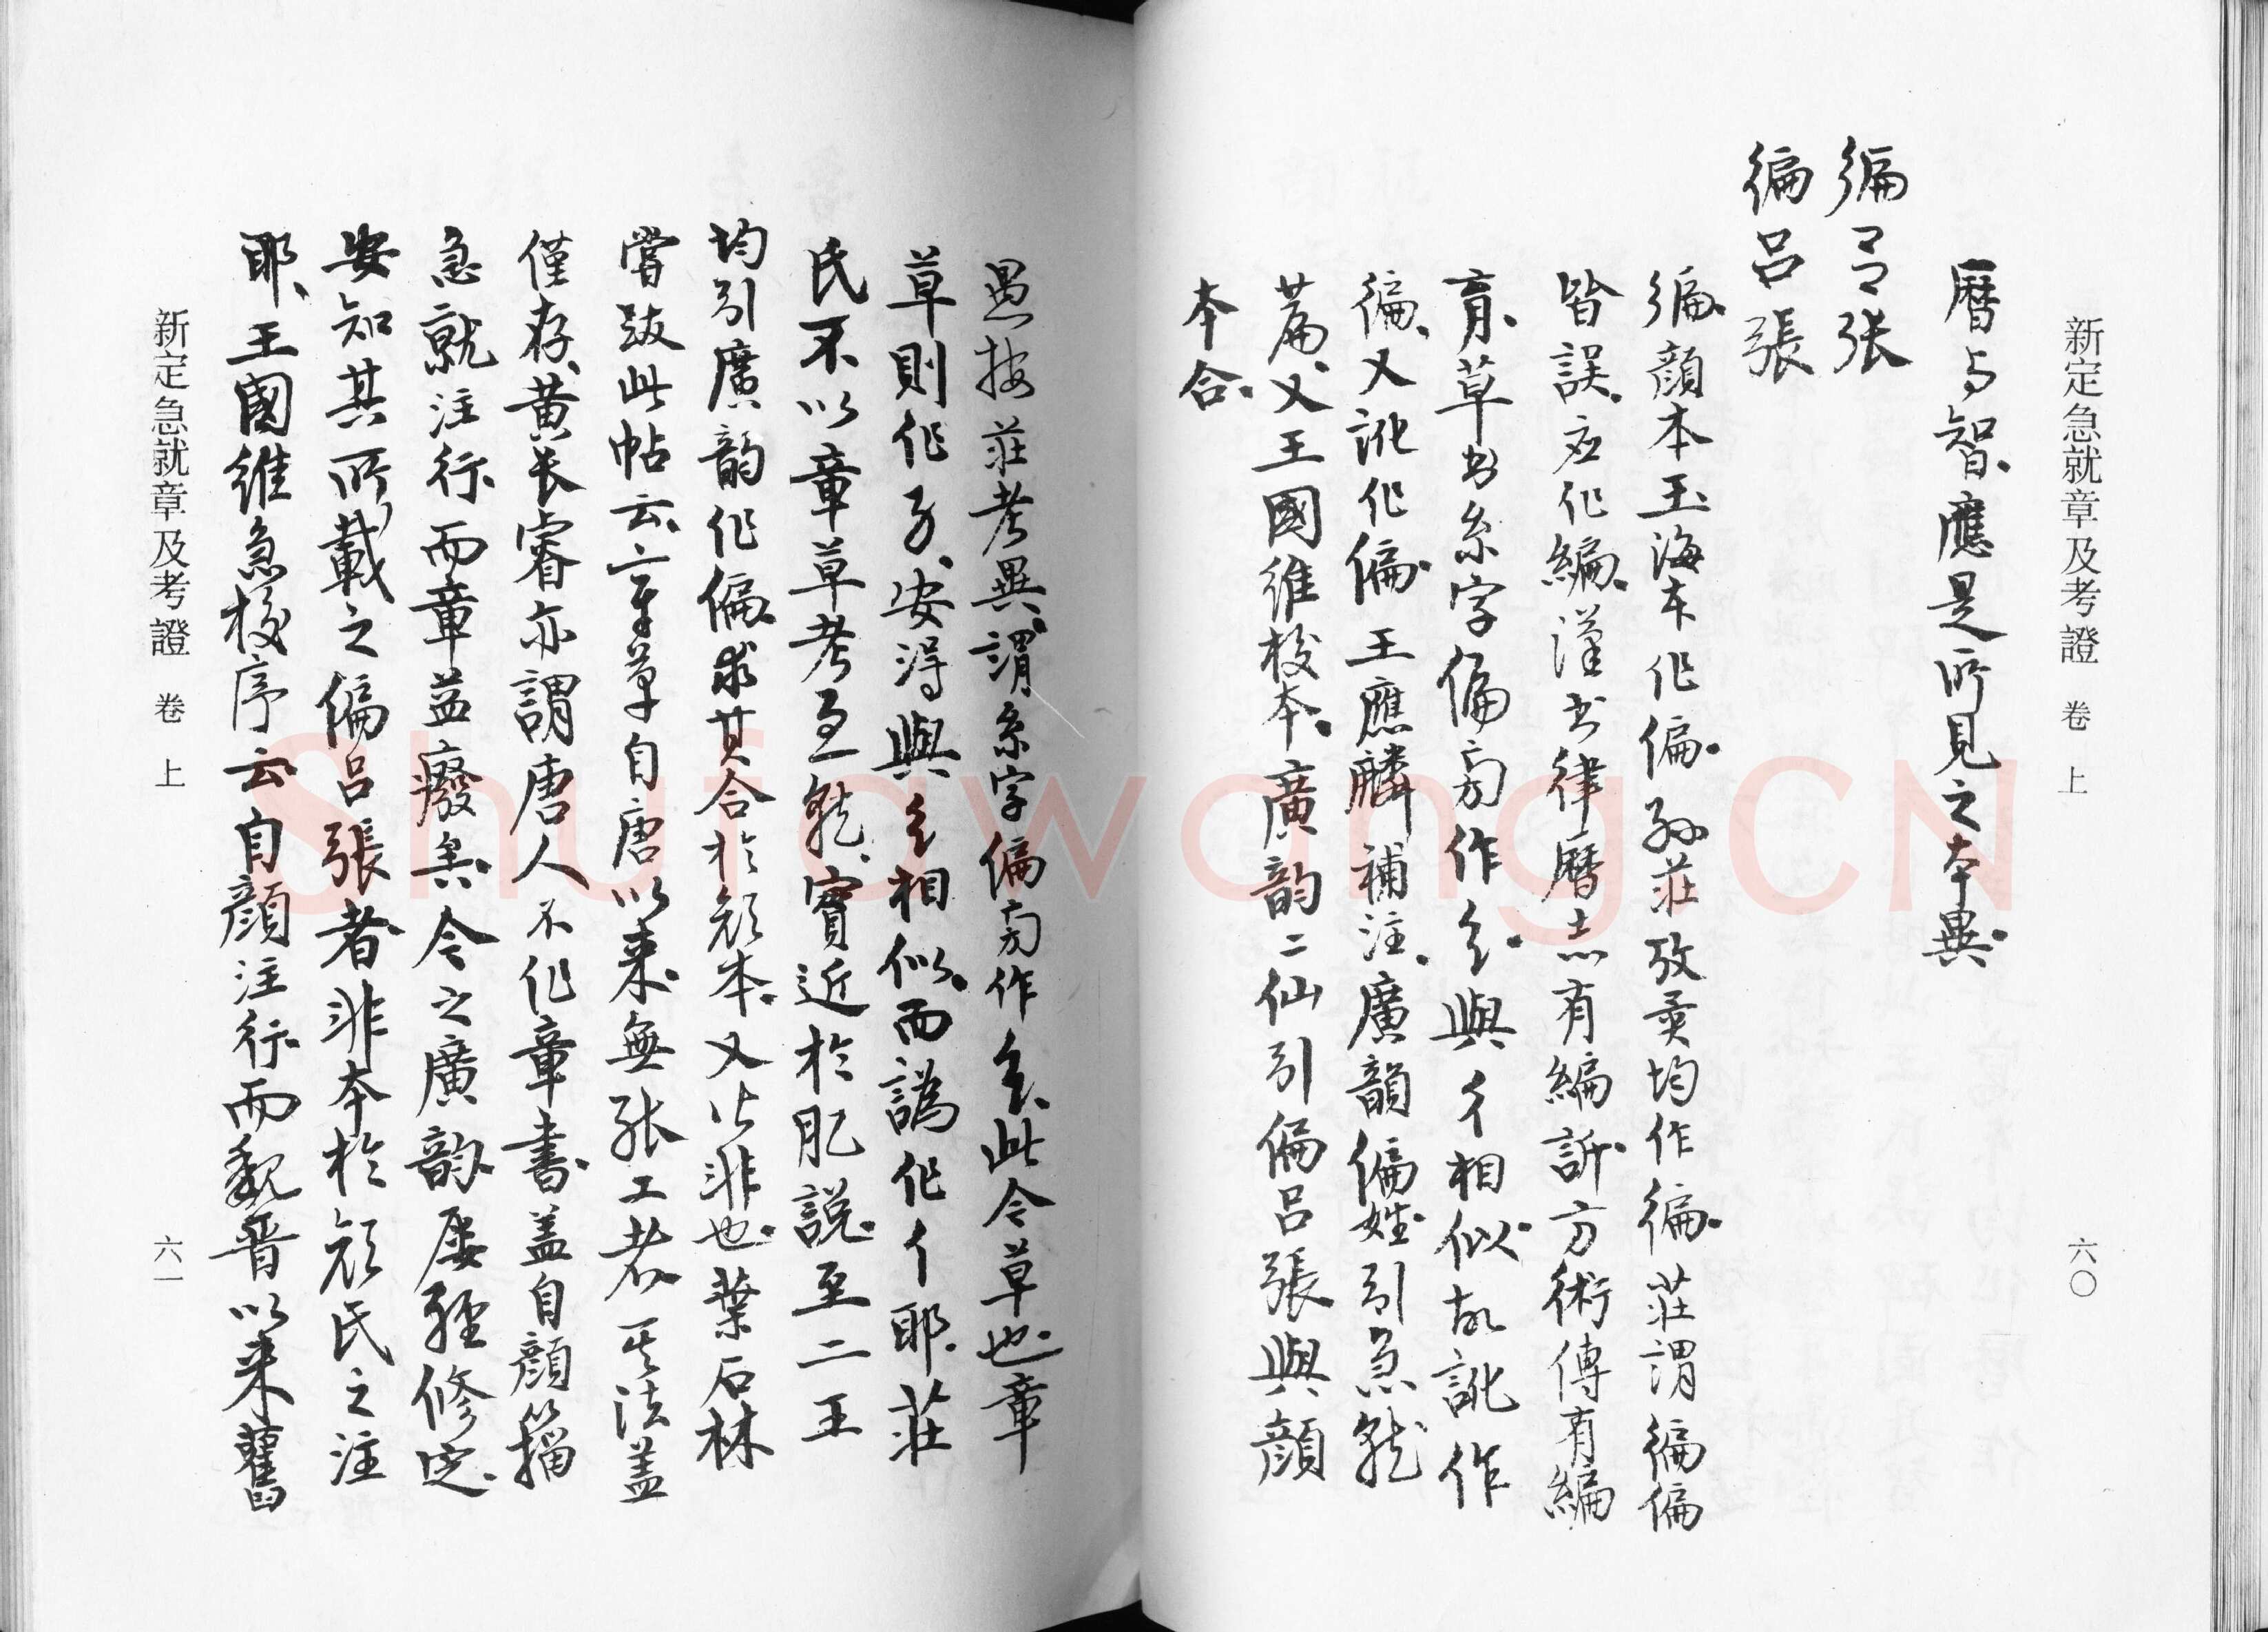 新定急就章及考證 卷上 六〇
曆与智應是所見之本異
徧呂张
徧呂張
徧顏本玉海本作偏孙莊攷異均作徧莊謂徧偏
皆誤应作編漢书律曆志有編訢方術傳有編
育草书糸字偏旁作纟與彳相似故訛作
徧又訛作偏王應麟補注廣韻偏姓引急就
萹又王國維校本廣韵二仙引偏呂張與顏
本合
愚按莊考異謂糸字偏旁作纟此今草也章
草則作子安得與纟相似而譌作彳耶莊
氏不以章草考急就實近於肊說至二王
均引廣韵作偏求其合於顏本又皆非也葉石林
嘗跋此帖云章草自唐以來無能工者其法蓋
僅存黄长睿亦謂唐人不作章書盖自顏籀
急就注行而章益癈矣今之廣韵屢經修定
安知其所載之偏呂張者非本於顏氏之注
耶王國維急校序云自顏注行而魏晉以来舊
新定急就章及考證 卷上 六一
Shufawang.CN